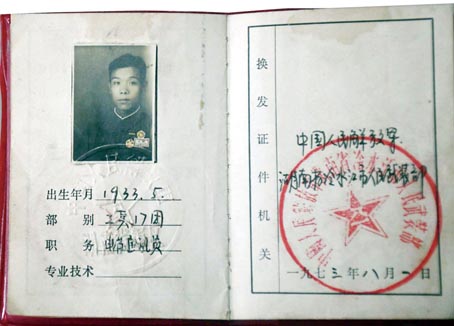 出生年月 1933.5.
部别 工兵17团
职务
专业技术
换发证件机关
中国人民解放军
湖南省冷水江市人民武装部
一九七三年八月一日